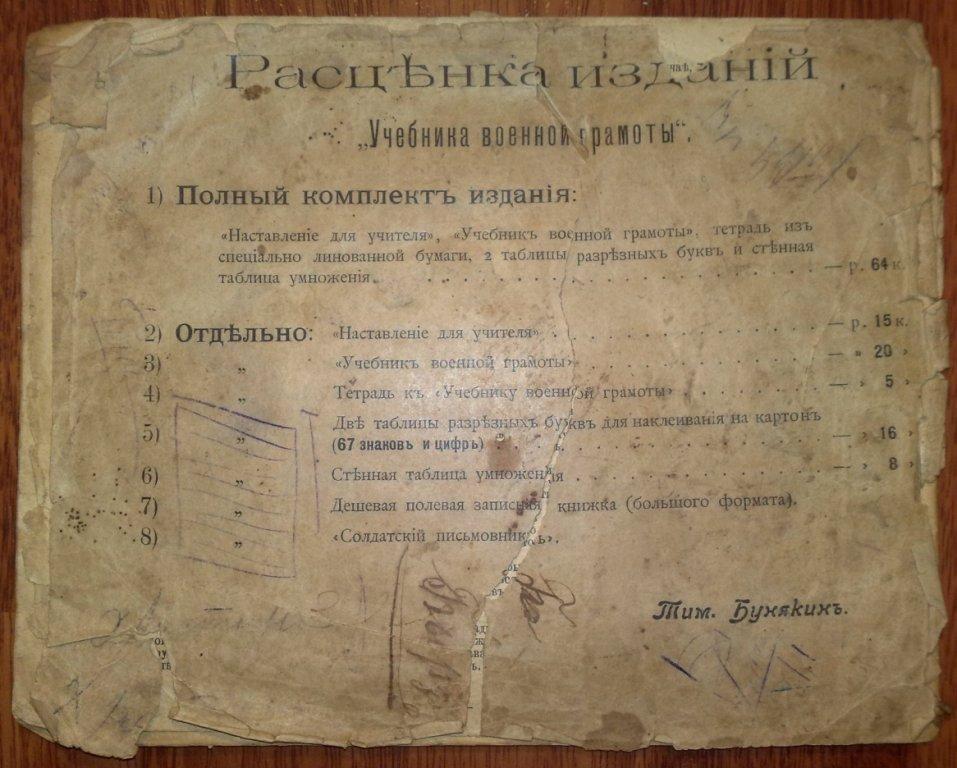 Расцѣнка изданій
„Учебника военной грамоты“.
1) Полный комплектъ изданія:
«Наставленіе для учителя», «Учебникъ военной грамоты», тетрадь изъ
спеціально линованной бумаги, 2 таблицы разрѣзныхъ буквъ и стѣнная
таблица умноженія. — р. 64 к.
2) Отдѣльно: «Наставленіе для учителя» — р. 15 к.
3) „ «Учебникъ военной грамоты» — » 20 »
4) „ Тетрадь къ «Учебнику военной грамоты» — » 5 »
5) „ Двѣ таблицы разрѣзныхъ буквъ для наклеиванія на картонъ
(67 знаковъ и цифръ) — » 16 »
6) „ Стѣнная таблица умноженія — » 8 »
7) „ Дешевая полевая записная книжка (большого формата).
8) „ «Солдатскій письмовникъ».
Тим. Бунякинъ.